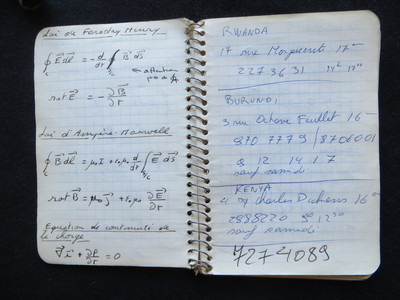 Loi de Faraday Henry
∮_C E⃗ dl⃗ = - d/dt ∫_S/C B⃗ ds⃗
attention
pas ∮
rot E⃗ = - ∂B⃗/∂t
Loi d'Ampère-Maxwell
∮_C B⃗ dl⃗ = μ₀ I + ε₀μ₀ d/dt ∫_S/C E⃗ ds⃗
rot B⃗ = μ₀ j⃗ + ε₀μ₀ ∂E⃗/∂t
Equation de continuité de
la charge
∇⃗ i⃗ + ∂ρ/∂t = 0
RWANDA
17 rue Margueritt 17
227 36 31 14 17
BURUNDI
3 rue Octave Feuillet 16
870 7779 / 8706001
9 12 14 17
sauf samedi
KENYA
4 Charles Dickens 16
2888220 9 12 30
sauf samedi
727 4089